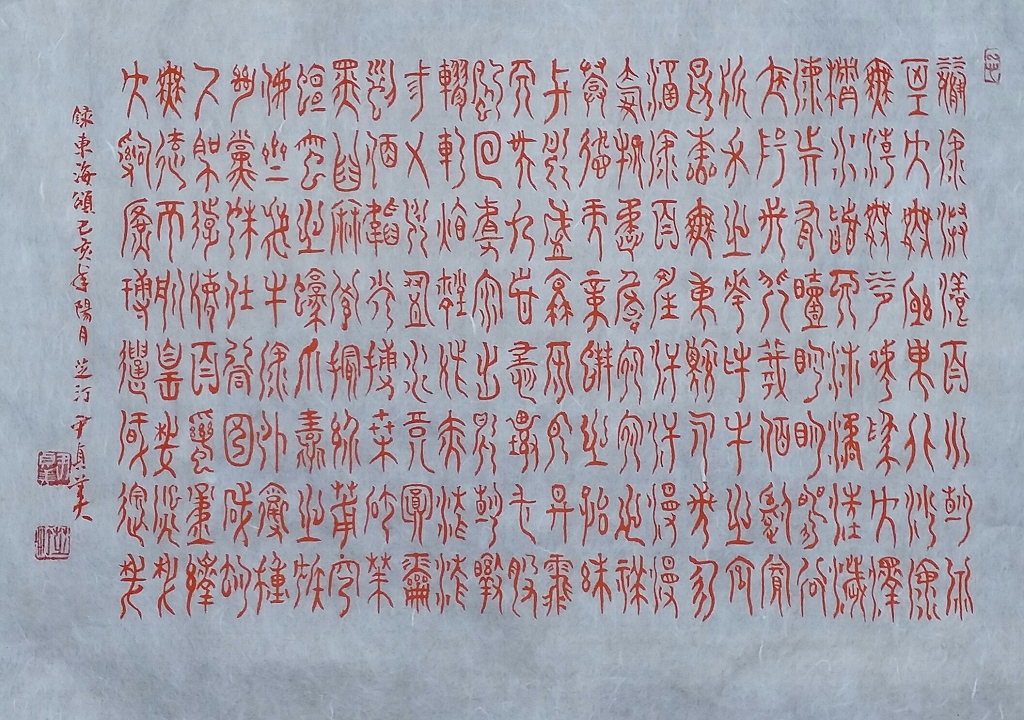 瀛海漭瀁百川朝宗
其大無窮東北沙海
無潮無汐號爲大澤
積水稽天浡潏汪濊
海動有曀明明暘谷
太陽之門羲伯司賓
析木之次牝牛之宮
日本無東鮫人之珍
涵海百産汗汗漫漫
奇物譎詭宛宛之祥
興德而章蚌之胎珠
與月盛衰旁氣昇霏
天吳九首怪夔一股
飆回且雨出日朝暾
轇軋炫熿紫赤滄滄
三五月盈水鏡圓靈
列宿韜光扶桑沙華
黑齒麻羅撮髻莆家
蜒蠻之蠔爪蛙之猴
佛齊之牛海外雜種
絶黨殊俗同囿咸育
古聖遠德百蠻重譯
無遠不服皇哉熙哉
大治廣博遺風邈哉
錄東海頌己亥年陽月芝汀尹貞美